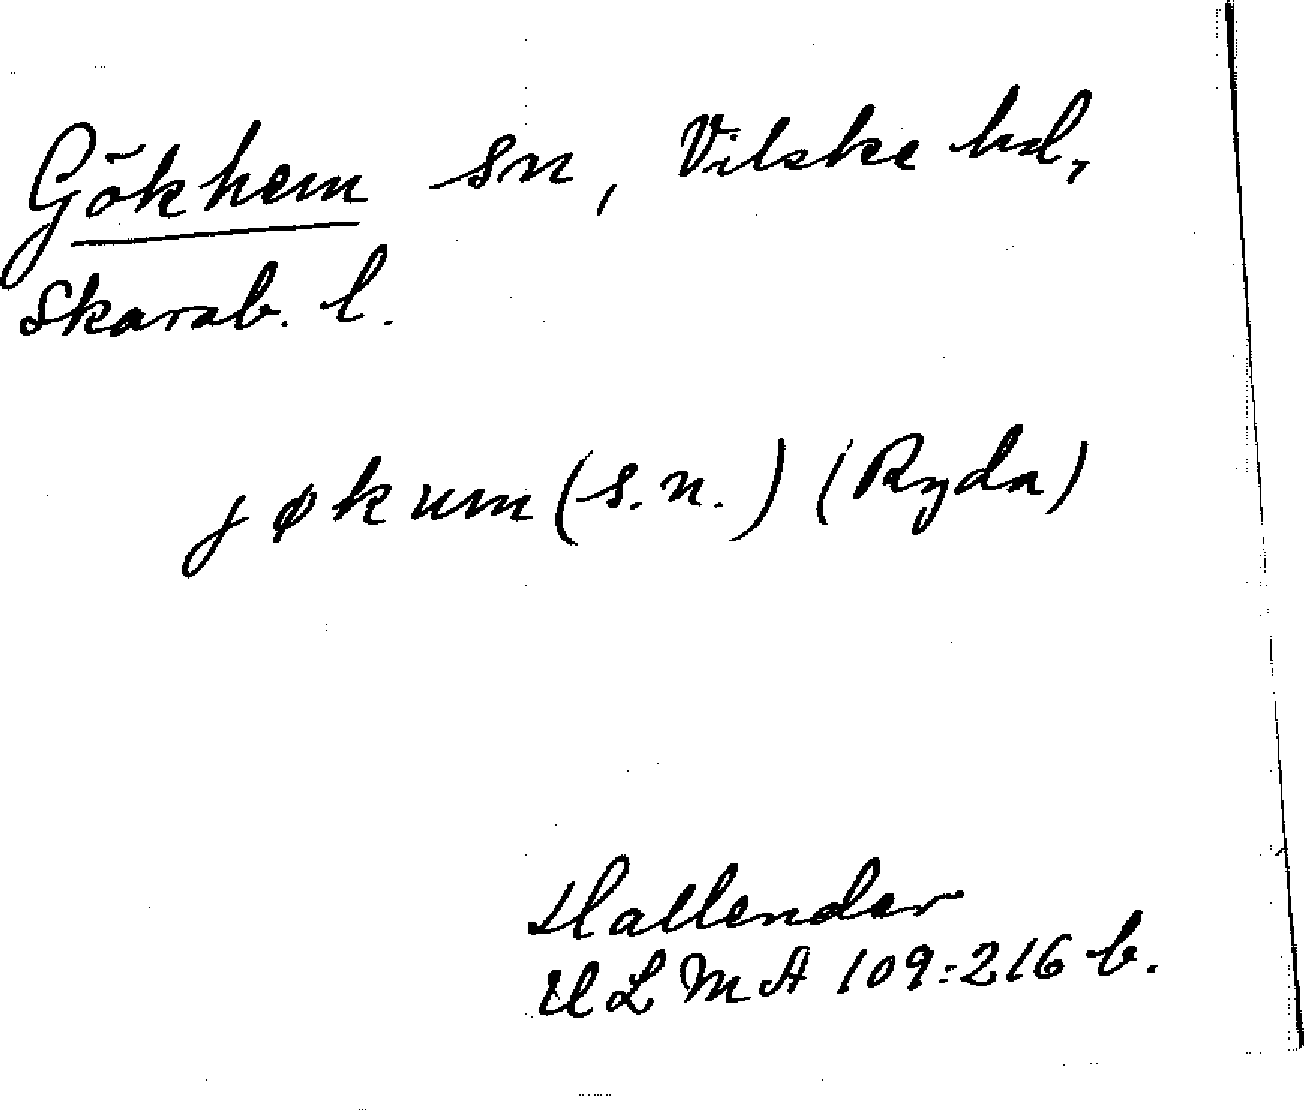 Gökhem sn, Vilske hd,
Skarab. l.
jøkum (s.n.) (Ryda)
Hallender
ULMA 109:216 b.